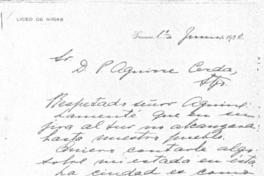 LICEO DE NIÑAS
1º Junio, 19
Sr.
D. P. Aguirre Cerda,
Stgo.
Respetado señor Aguirre
que en su
jira al sur no alcanzara
hasta nuestro pueblo.
Quiero contarle algo
sobre mi estada en ésta
ciudad es como